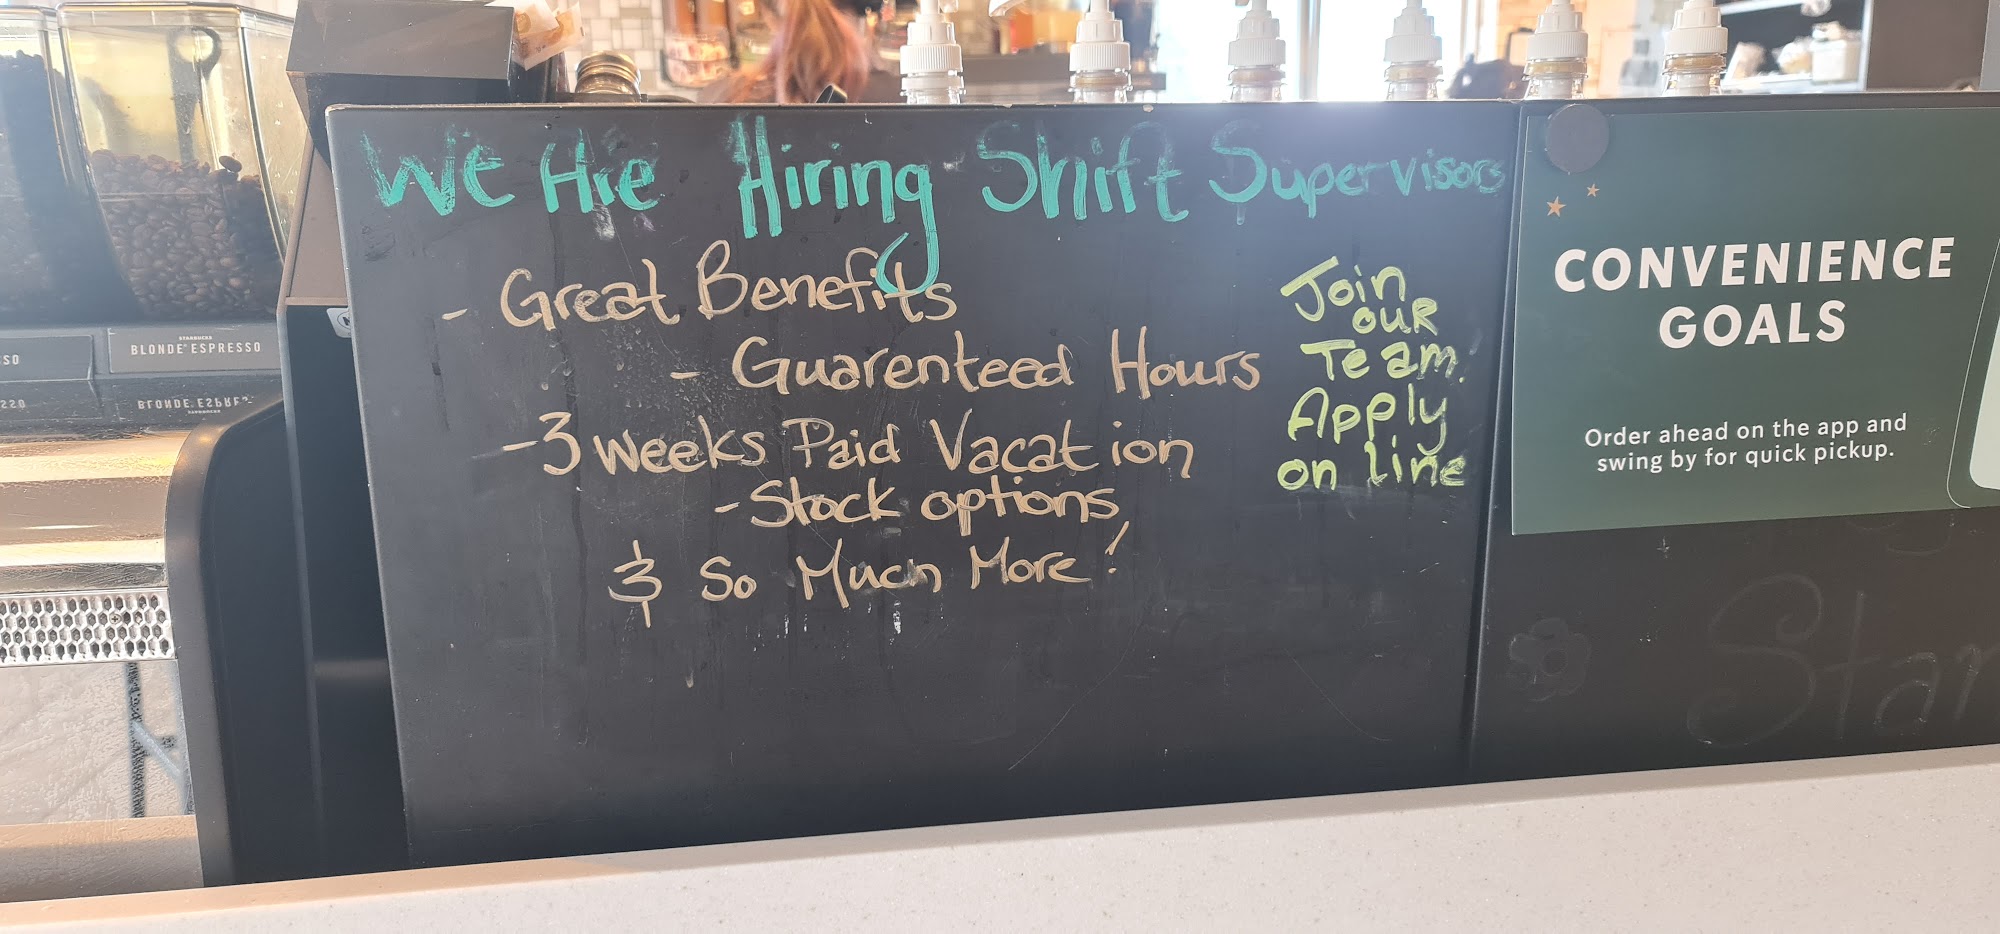 We Are Hiring Shift Supervisors
- Great Benefits
- Guarenteed Hours
- 3 weeks Paid Vacation
- Stock options
& So Much More!
Join
our
Team.
Apply
on line
CONVENIENCE
GOALS
Order ahead on the app and
swing by for quick pickup.
STARBUCKS
BLONDE ESPRESSO